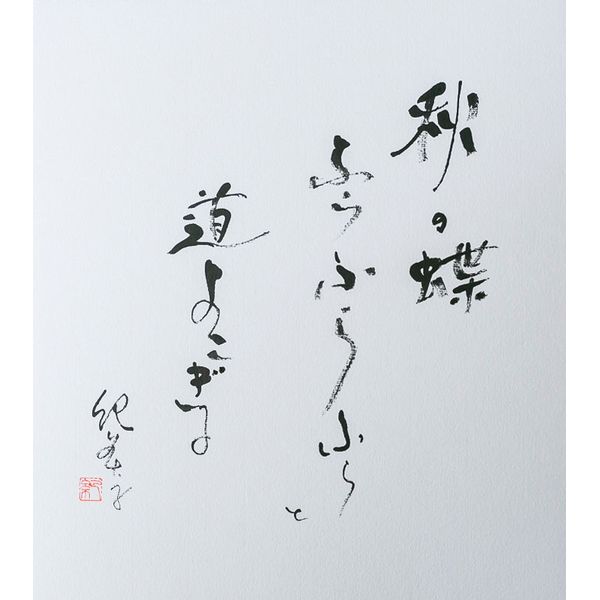 秋の蝶
ふらふらふらと
道よこぎる
紀美子